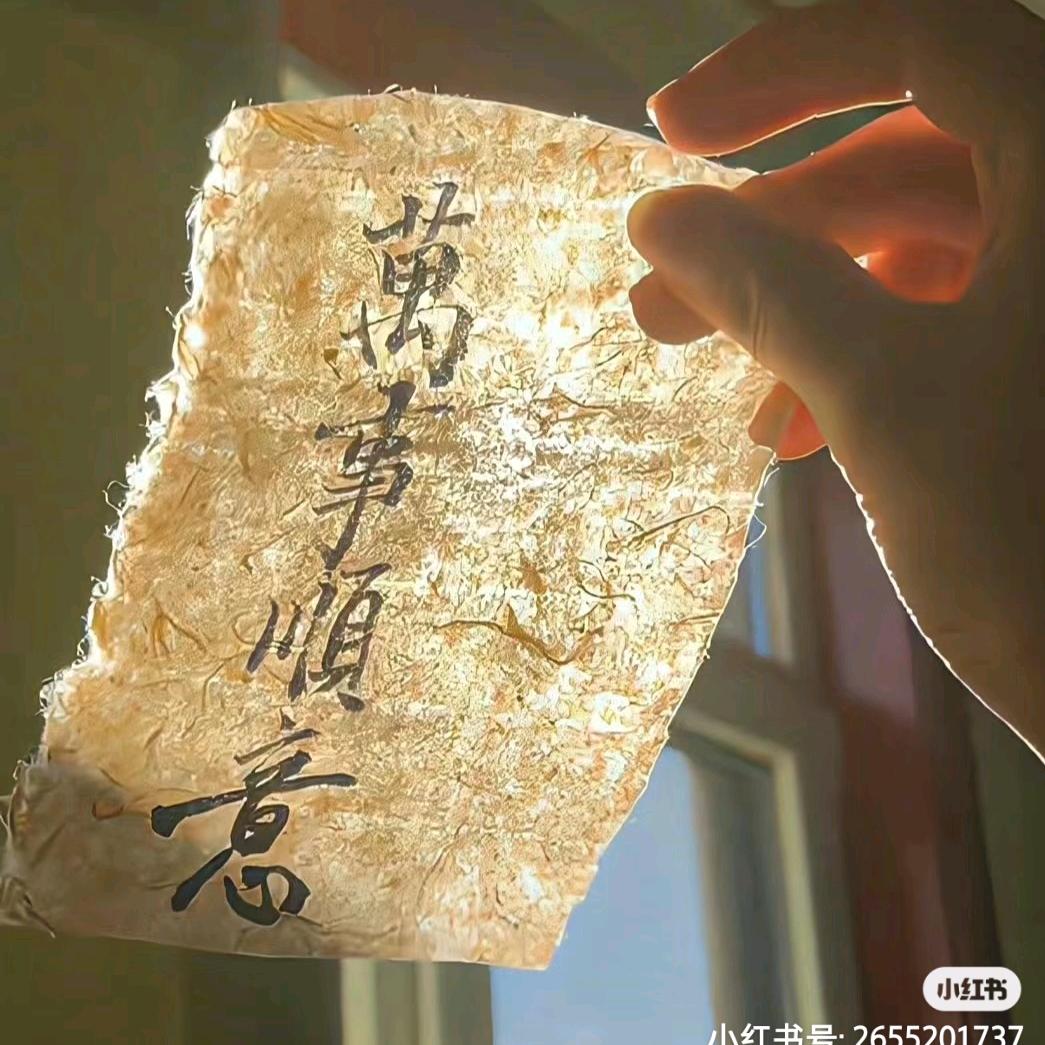 萬事順意
小红书
小红书号: 2655201737